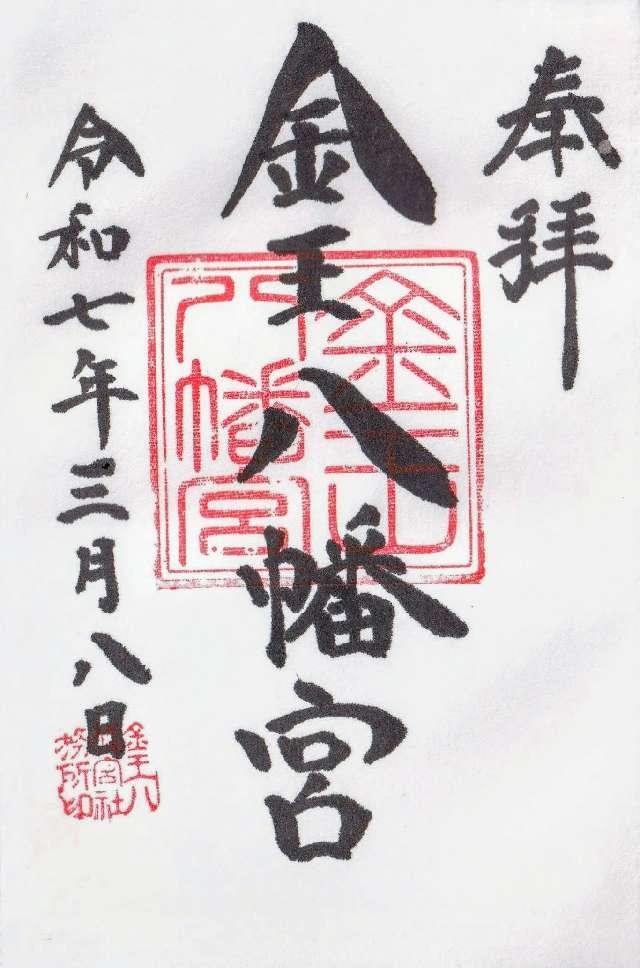 奉拝
金王八幡宮
金王
八幡宮
令和七年三月八日
金王八
幡宮社
務所印